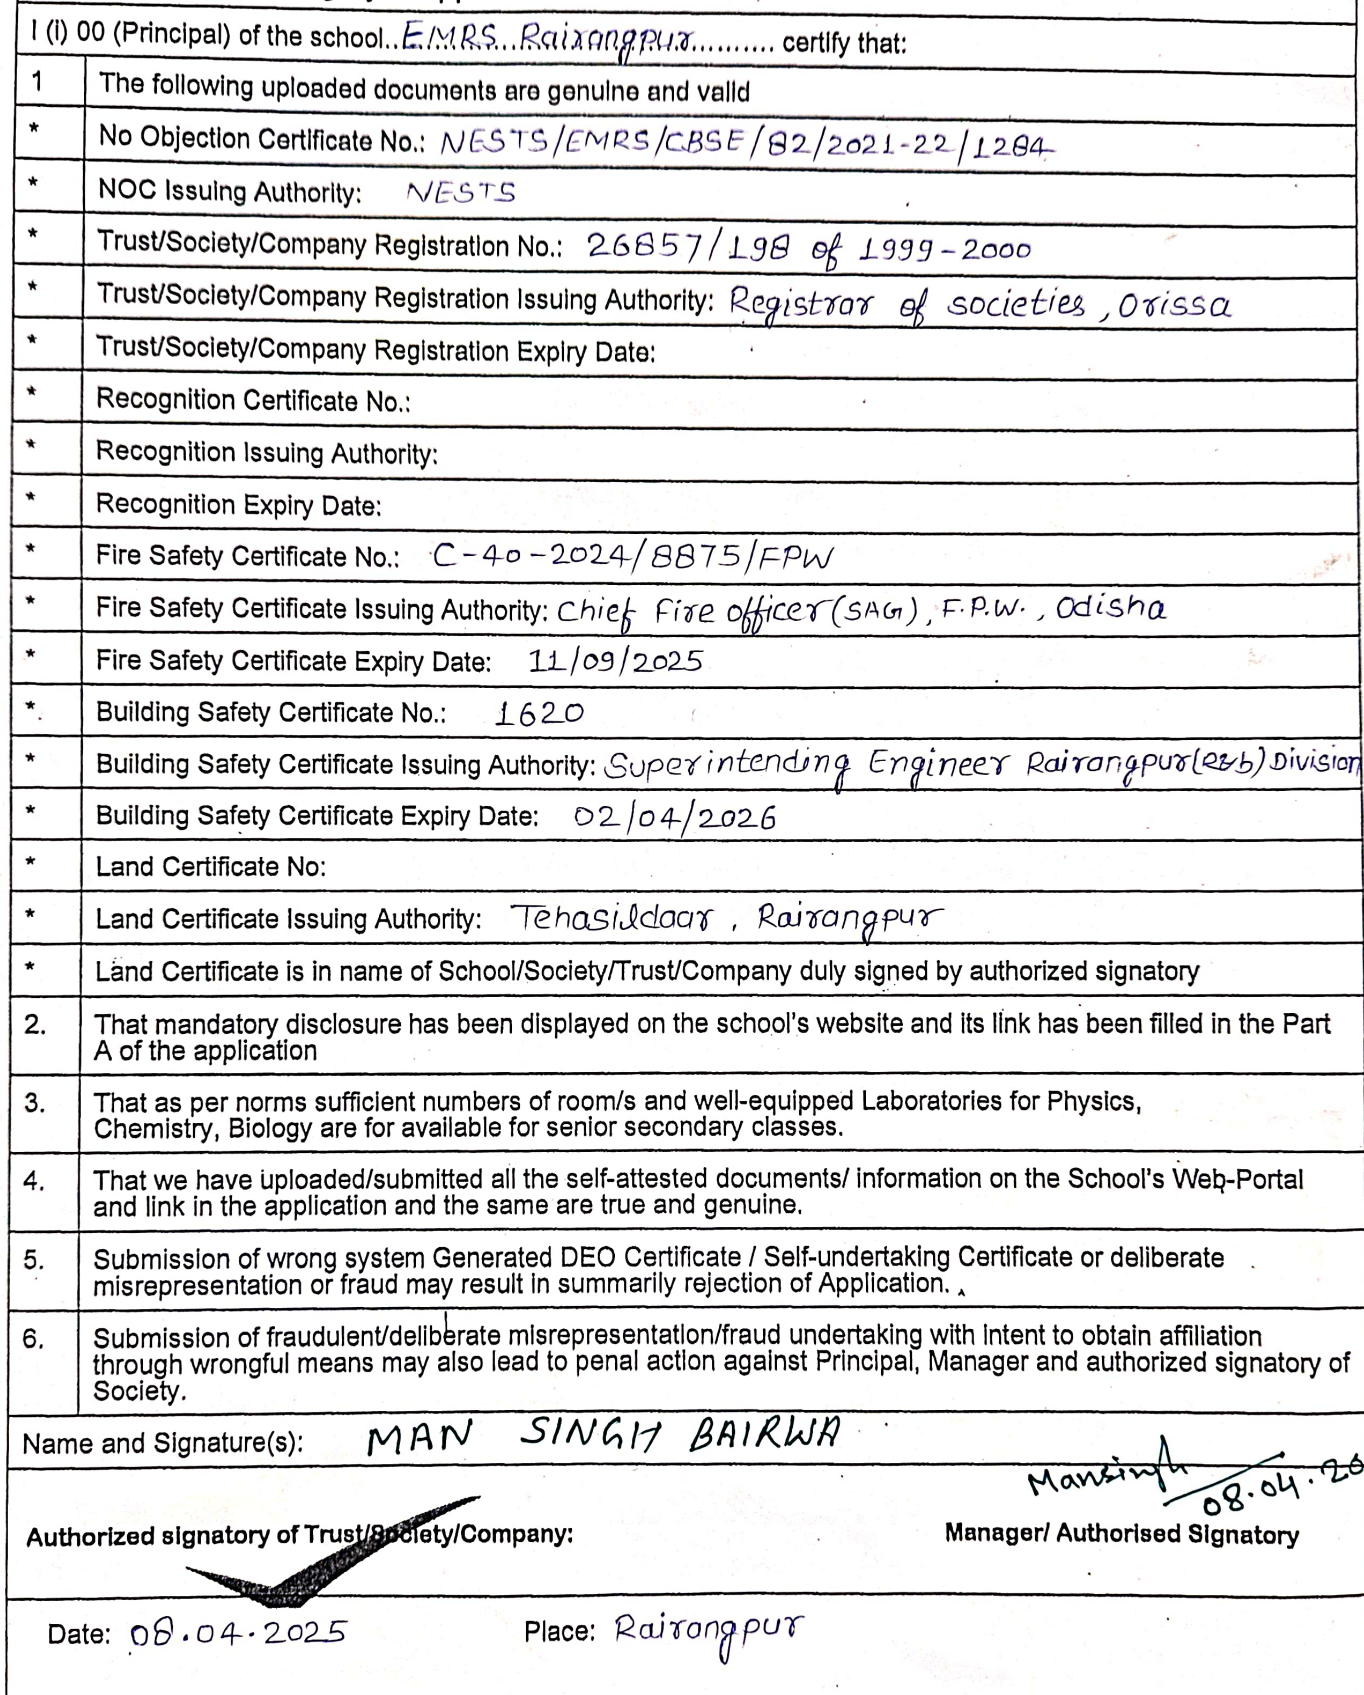 I (i) 00 (Principal) of the school..EMRS...Rairangpur.......... certify that:
1 The following uploaded documents are genuine and valid
* No Objection Certificate No.: NESTS/EMRS/CBSE/82/2021-22/1284
* NOC Issuing Authority: NESTS
* Trust/Society/Company Registration No.: 26857/198 of 1999-2000
* Trust/Society/Company Registration Issuing Authority: Registrar of societies, Orissa
* Trust/Society/Company Registration Expiry Date:
* Recognition Certificate No.:
* Recognition Issuing Authority:
* Recognition Expiry Date:
* Fire Safety Certificate No.: C-40-2024/8875/FPW
* Fire Safety Certificate Issuing Authority: Chief Fire officer(SAG), F.P.W., Odisha
* Fire Safety Certificate Expiry Date: 11/09/2025
* Building Safety Certificate No.: 1620
* Building Safety Certificate Issuing Authority: Superintending Engineer Rairangpur(R&b) Division
* Building Safety Certificate Expiry Date: 02/04/2026
* Land Certificate No:
* Land Certificate Issuing Authority: Tehasildaar, Rairangpur
* Land Certificate is in name of School/Society/Trust/Company duly signed by authorized signatory
2. That mandatory disclosure has been displayed on the school's website and its link has been filled in the Part
A of the application
3. That as per norms sufficient numbers of room/s and well-equipped Laboratories for Physics,
Chemistry, Biology are for available for senior secondary classes.
4. That we have uploaded/submitted all the self-attested documents/ information on the School's Web-Portal
and link in the application and the same are true and genuine.
5. Submission of wrong system Generated DEO Certificate / Self-undertaking Certificate or deliberate
misrepresentation or fraud may result in summarily rejection of Application.
6. Submission of fraudulent/deliberate misrepresentation/fraud undertaking with intent to obtain affiliation
through wrongful means may also lead to penal action against Principal, Manager and authorized signatory of
Society.
Name and Signature(s): MAN SINGH BAIRWA
Mansingh
08.04.20
Authorized signatory of Trust/Society/Company:
Manager/ Authorised Signatory
Date: 08.04.2025 Place: Rairangpur